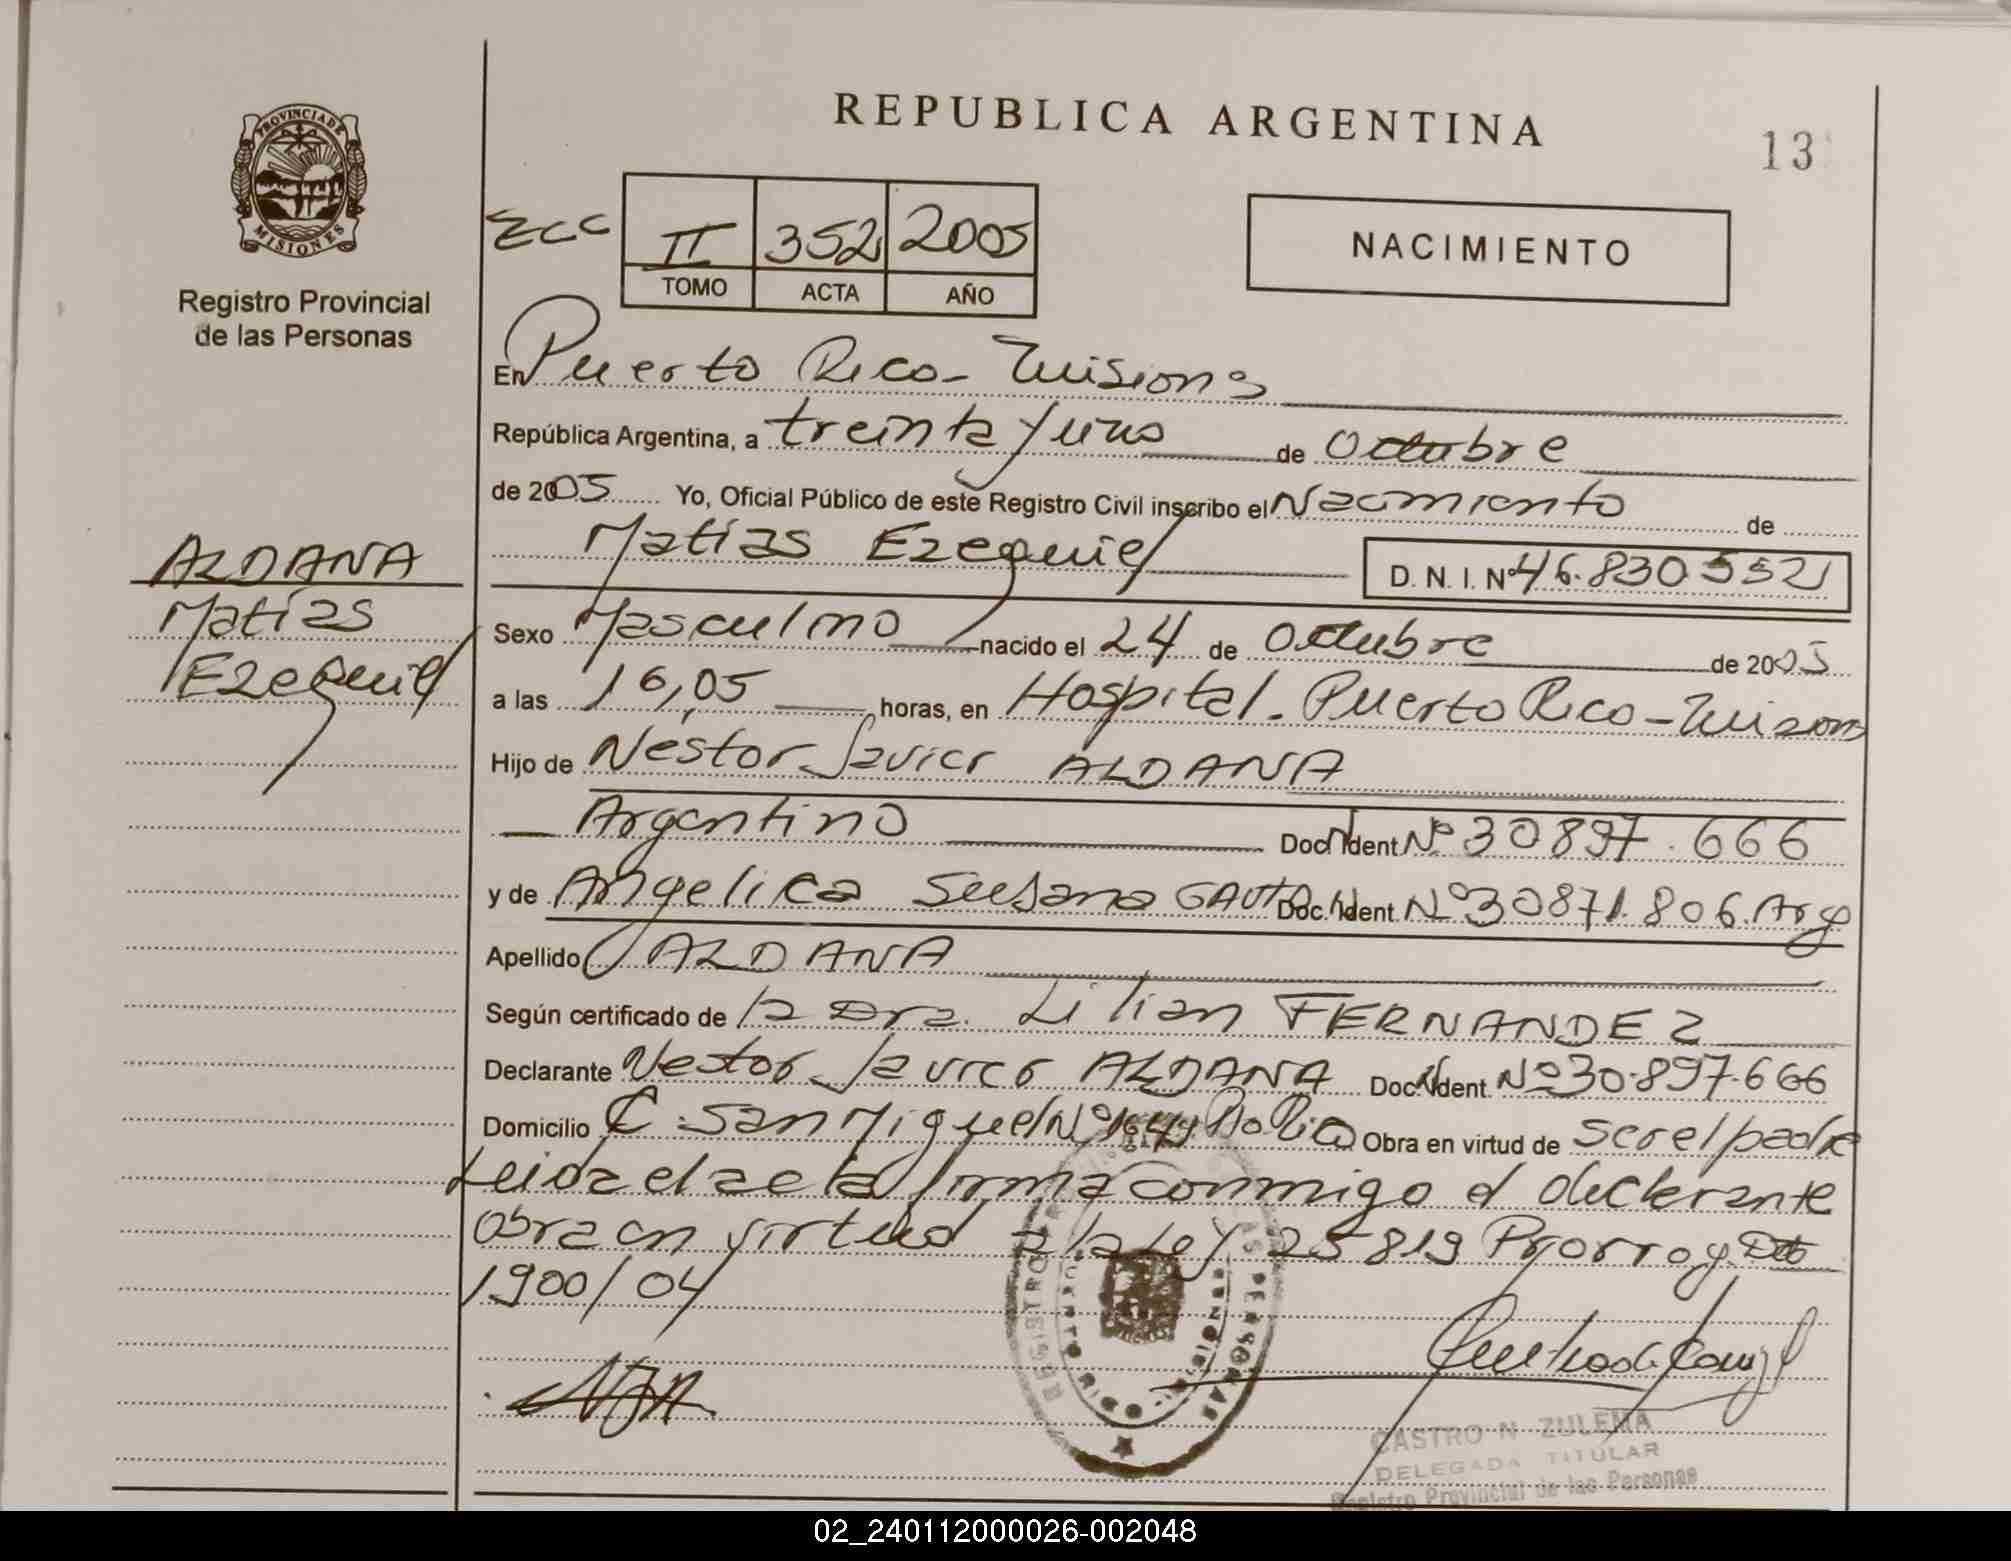 REPUBLICA ARGENTINA
13
PROVINCIA DE
MISIONES
Registro Provincial
de las Personas
II 352 2005
TOMO ACTA AÑO
NACIMIENTO
En Puerto Rico - Misiones
República Argentina, a treinta y uno de Octubre
de 2005 Yo, Oficial Público de este Registro Civil inscribo el Nacimiento de
Matías Ezequiel D. N. I. Nº 46.830.552
ALDANA
Matías
Ezequiel
Sexo Masculino nacido el 24 de Octubre de 2005
a las 16,05 horas, en Hospital. Puerto Rico - Misiones
Hijo de Nestor Javier ALDANA
Argentino Doc. Ident Nº 30897.666
y de Angelica Susana Doc. Ident. Nº 30871.806. Arg
Apellido ALDANA
Según certificado de la Dra. Lilian FERNANDEZ
Declarante Nestor Javier ALDANA Doc. Ident. Nº 30.897.666
Domicilio C. San Miguel Nº Obra en virtud de ser el padre
Leida el acta firma conmigo el declarante
Obra en virtud a la ley 25819 Prorrog Dto
1900/04
REGISTRO
PUERTO RICO
MISIONES
CASTRO N ZULEMA
DELEGADA TITULAR
Registro Provincial de las Personas
02_240112000026-002048